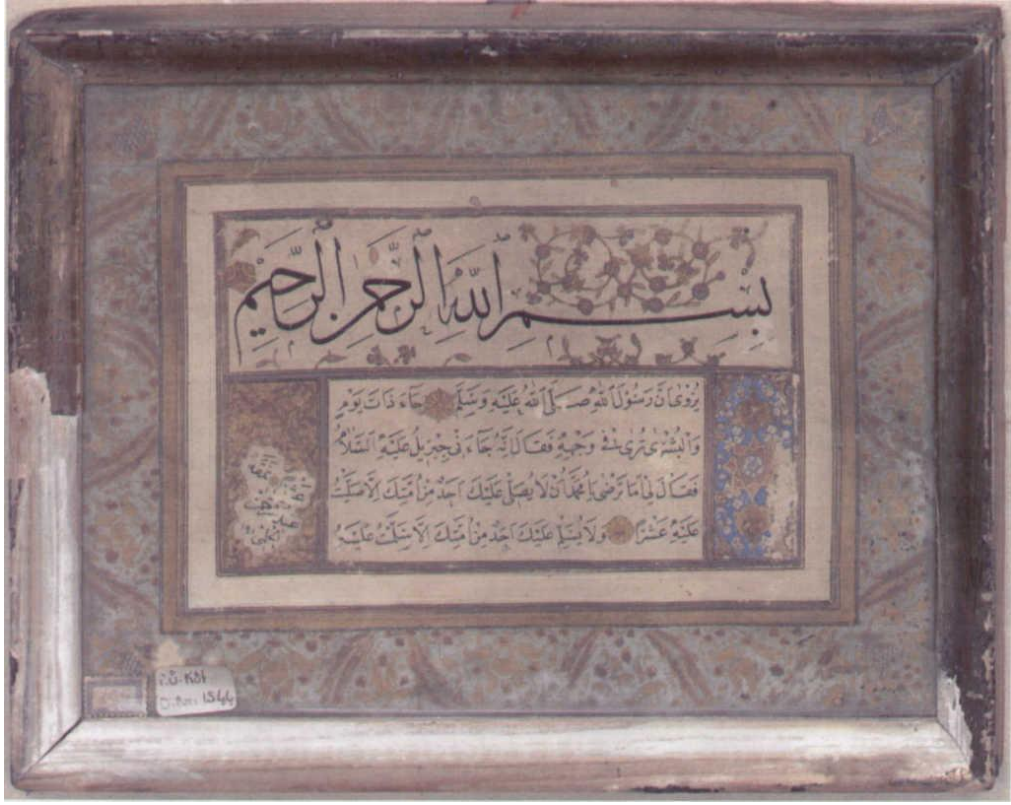 بِسْمِ اللَّهِ الرَّحْمَنِ الرَّحِيمِ
يُرْوٰى اَنَّ رَسُولَ اللهِ صَلَّى اللهُ عَلَيْهِ وَسَلَّمَ جَاءَ ذَاتَ يَوْمٍ
وَالْبُشْرٰى تُرٰى فِى وَجْهِهِ فَقَالَ اِنَّهُ جَاءَنِى جِبْرِيلُ عَلَيْهِ السَّلَامُ
فَقَالَ لِى اَمَا تَرْضٰى يَا مُحَمَّدُ اَنْ لَا يُصَلِّىَ عَلَيْكَ اَحَدٌ مِنْ اُمَّتِكَ اِلَّا صَلَّيْتُ
عَلَيْهِ عَشْرًا وَلَا يُسَلِّمَ عَلَيْكَ اَحَدٌ مِنْ اُمَّتِكَ اِلَّا سَلَّمْتُ عَلَيْهِ
1544